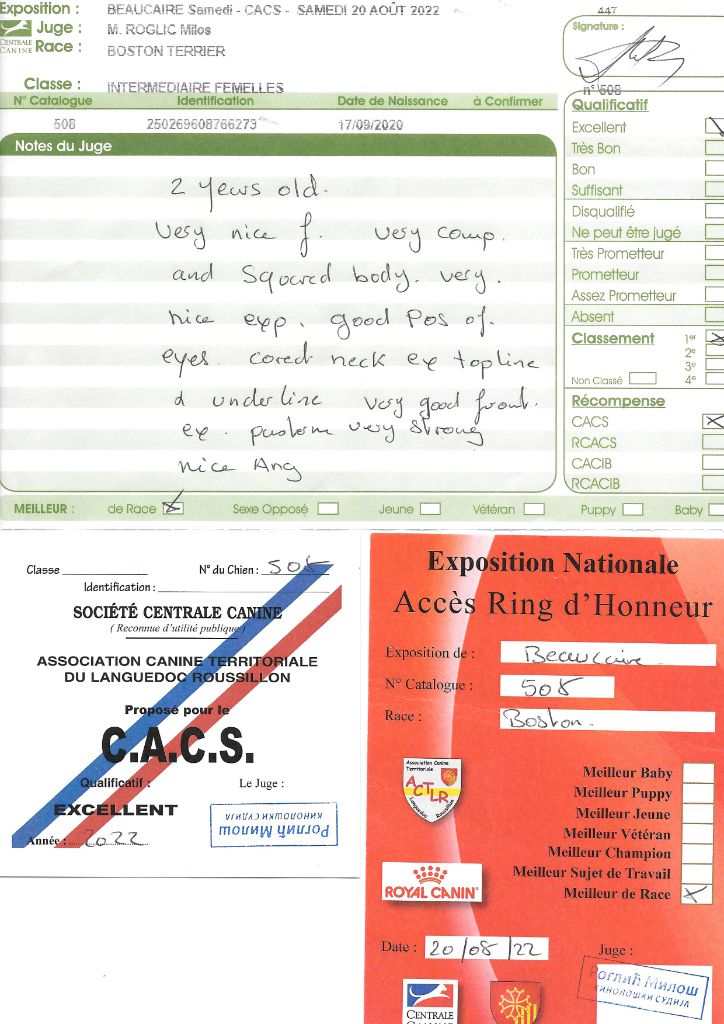 Exposition : BEAUCAIRE Samedi - CACS - SAMEDI 20 AOÛT 2022
447
CENTRALE CANINE
Juge : M. ROGLIC Milos
Race : BOSTON TERRIER
Signature :
Classe : INTERMEDIAIRE FEMELLES
n° 508
N° Catalogue Identification Date de Naissance à Confirmer
508 250269608766273 17/09/2020
Notes du Juge
2 years old.
Very nice f. very comp.
and Squared body. very.
nice exp. good Pos of.
eyes. corect neck ex topline
d underline very good front.
ex. pasterns very strong
nice Ang
Qualificatif
Excellent
Très Bon
Bon
Suffisant
Disqualifié
Ne peut être jugé
Très Prometteur
Prometteur
Assez Prometteur
Absent
Classement 1er
2e
3e
Non Classé 4e
Récompense
CACS
RCACS
CACIB
RCACIB
MEILLEUR : de Race Sexe Opposé Jeune Vétéran Puppy Baby
Classe N° du Chien : 508
Identification :
SOCIÉTÉ CENTRALE CANINE
( Reconnue d'utilité publique )
ASSOCIATION CANINE TERRITORIALE
DU LANGUEDOC ROUSSILLON
Proposé pour le
C.A.C.S.
Qualificatif : Le Juge :
EXCELLENT
Роглић Милош
КИНОЛОШКИ СУДИЈА
Année : 2022
Exposition Nationale
Accès Ring d'Honneur
Exposition de : Beaucaire
N° Catalogue : 508
Race : Boston.
Association Canine
Territoriale
ACTLR
Languedoc Roussillon
Meilleur Baby
Meilleur Puppy
Meilleur Jeune
Meilleur Vétéran
Meilleur Champion
Meilleur Sujet de Travail
Meilleur de Race
ROYAL CANIN
Date : 20/08/22 Juge :
Роглић Милош
КИНОЛОШКИ СУДИЈА
CENTRALE